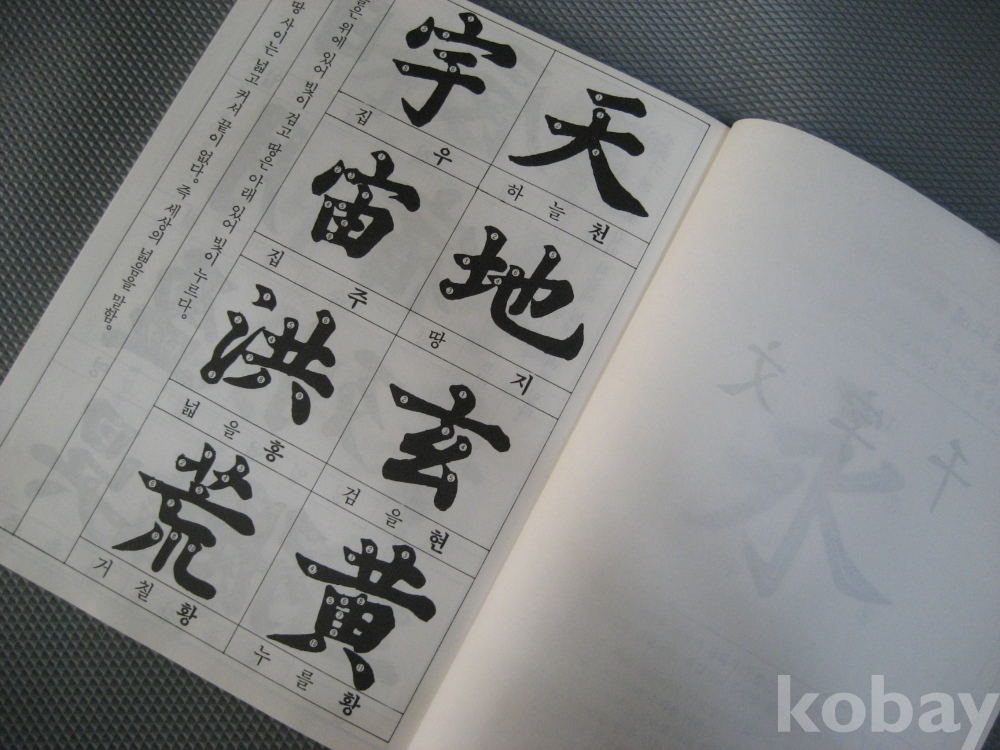 天
하늘 천
地
땅 지
玄
검을 현
黃
누를 황
宇
집 우
宙
집 주
洪
넓을 홍
荒
거칠 황
은 위에 있어 빛이 검고 땅은 아래 있어 빛이 누르다.
땅 사이는 넓고 커서 끝이 없다. 즉 세상의 넓음을 말함.
千
字
文
kobay